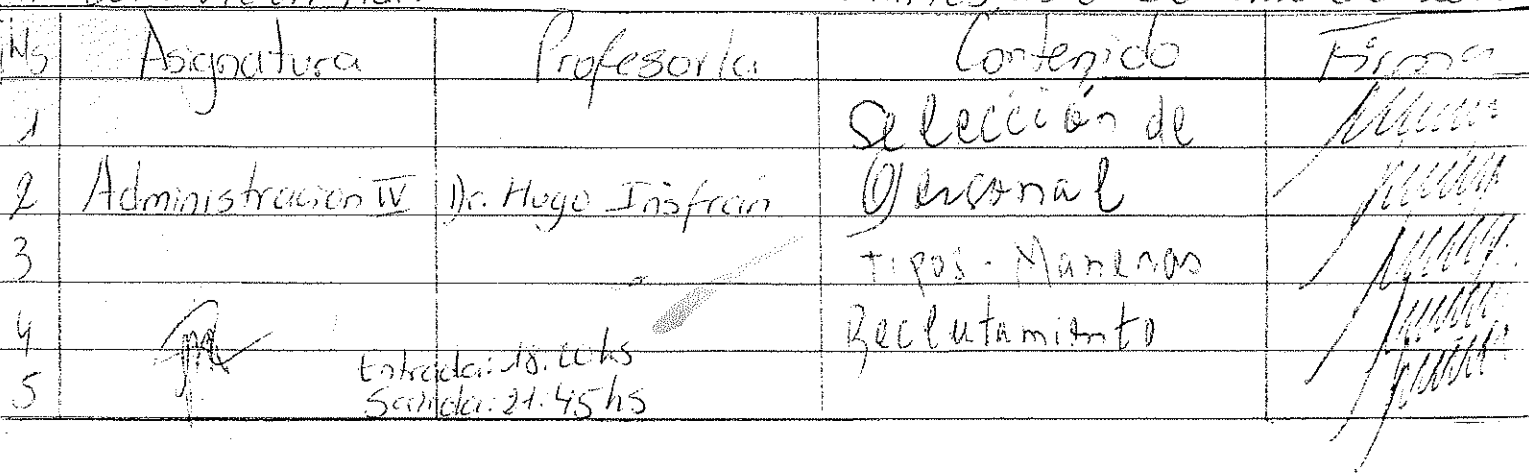 Nº Asignatura Profesor/a Contenido Firma
1 Selección de
2 Administración IV Dr. Hugo Insfrán Personal
3 Tipos - Maneras
4 Reclutamiento
Entrada: hs
5 Salida: 21:45 hs